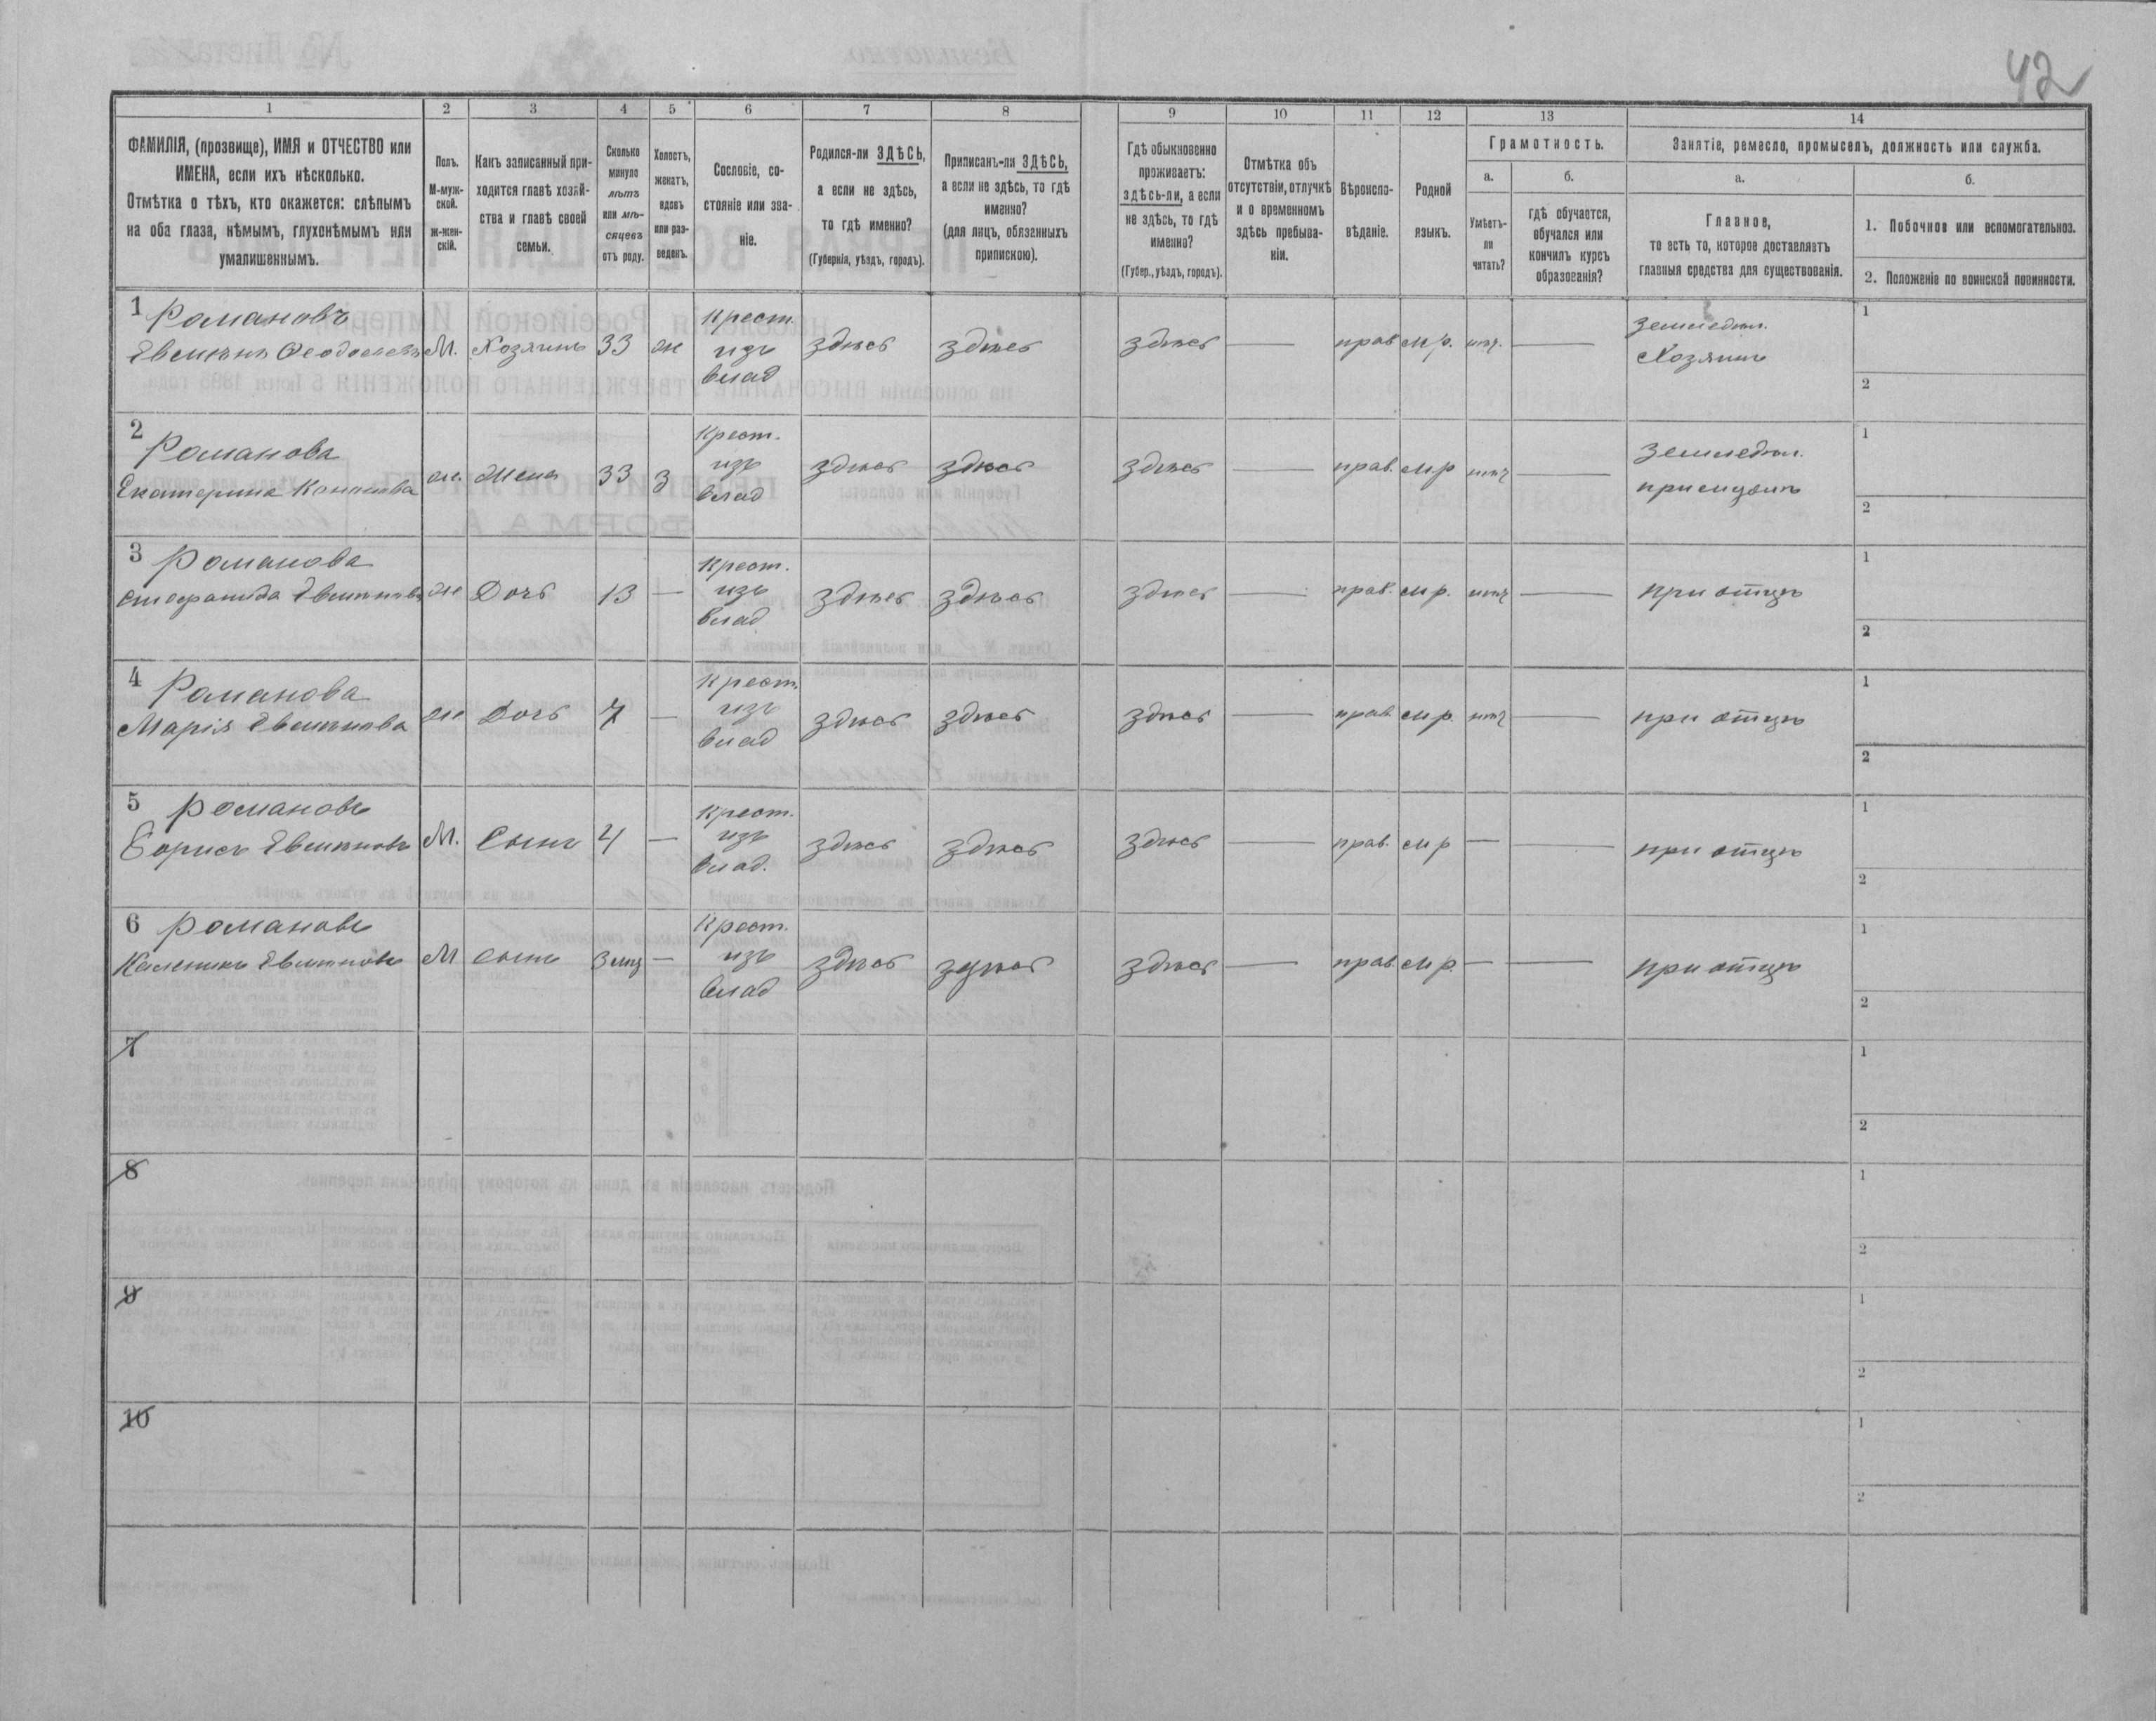 42
1 2 3 4 5 6 7 8 9 10 11 12 13 14
ФАМИЛІЯ, (прозвище), ИМЯ и ОТЧЕСТВО или
ИМЕНА, если ихъ нѣсколько.
Отмѣтка о тѣхъ, кто окажется: слѣпымъ
на оба глаза, нѣмымъ, глухонѣмымъ или
умалишеннымъ.
Полъ.
М-муж-
ской.
Ж-жен-
скій.
Какъ записанный при-
ходится главѣ хозяй-
ства и главѣ своей
семьи.
Сколько
минуло
лѣтъ
или мѣ-
сяцевъ
отъ роду.
Холостъ,
женатъ,
вдовъ
или раз-
веденъ.
Сословіе, со-
стояніе или зва-
ніе.
Родился-ли ЗДѢСЬ,
а если не здѣсь,
то гдѣ именно?
(Губернія, уѣздъ, городъ).
Приписанъ-ли ЗДѢСЬ,
а если не здѣсь, то гдѣ
именно?
(для лицъ, обязанныхъ
припискою).
Гдѣ обыкновенно
проживаетъ:
здѣсь-ли, а если
не здѣсь, то гдѣ
именно?
(Губер., уѣздъ, городъ).
Отмѣтка объ
отсутствіи, отлучкѣ
и о временномъ
здѣсь пребыва-
ніи.
Вѣроиспо-
вѣданіе.
Родной
языкъ.
Грамотность.
а.
Умѣетъ-
ли
читать?
б.
гдѣ обучается,
обучался или
кончилъ курсъ
образованія?
Занятіе, ремесло, промыселъ, должность или служба.
а.
Главное,
то есть то, которое доставляетъ
главныя средства для существованія.
б.
1. Побочное или вспомогательное.
2. Положеніе по воинской повинности.
1 Романовъ
М. Хозяинъ 33 ж
Крест.
изъ
влад
здѣсь здѣсь здѣсь — прав м р. нѣт. —
земледѣл.
Хозяинъ
1
2
2 Романова
Екатерина
ж. Жена 33 З
Крест.
изъ
влад
здѣсь здѣсь здѣсь — прав. м р нѣт —
земледѣл.
1
2
3 Романова
ж Дочь 13 —
Крест.
изъ
влад
здѣсь здѣсь здѣсь — прав. м р. нѣт —
при отцѣ
1
2
4 Романова
Марія
ж Дочь 7 —
Крест.
изъ
влад
здѣсь здѣсь здѣсь — прав м р. нѣт —
при отцѣ
1
2
5 Романовъ
Борисъ
М. Сынъ 4 —
Крест.
изъ
влад.
здѣсь здѣсь здѣсь — прав. м р — —
при отцѣ
1
2
6 Романовъ
М Сынъ 3 мц —
Крест.
изъ
влад
здѣсь здѣсь здѣсь — прав. м р. — —
при отцѣ
1
2
7
1
2
8
1
2
9
1
2
10
1
2